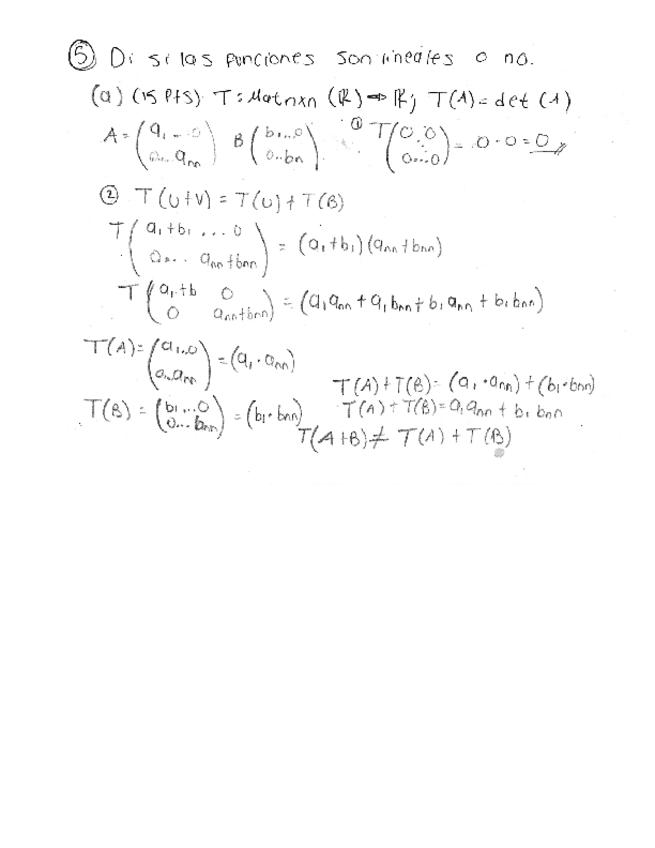 ⑤ Di si las funciones son lineales o no.
(a) (15 Pts). T: Matnxn (ℝ) ⇒ ℝ; T(A) = det (A)
A = (a₁ ... 0 / 0... aₙₙ) B (b₁...0 / 0..bₙ). ① T(0..0 / 0...0) = 0·0 = 0 //
② T(U+V) = T(U) + T(B)
T(a₁+b₁ ... 0 / 0... aₙₙ+bₙₙ) = (a₁+b₁)(aₙₙ+bₙₙ)
T(a₁+b 0 / 0 aₙₙ+bₙₙ) = (a₁aₙₙ + a₁bₙₙ + b₁aₙₙ + b₁bₙₙ)
T(A) = (a₁...0 / 0...aₙₙ) = (a₁ · aₙₙ)
T(B) = (b₁...0 / 0...bₙₙ) = (b₁·bₙₙ)
T(A) + T(B) = (a₁·aₙₙ) + (b₁·bₙₙ)
T(A) + T(B) = a₁aₙₙ + b₁bₙₙ
T(A+B) ≠ T(A) + T(B)